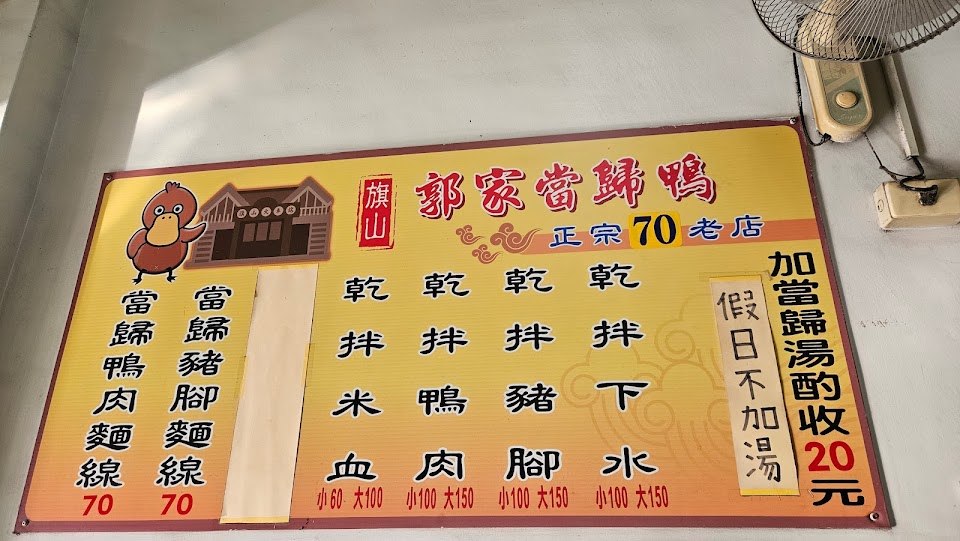 旗山
郭家當歸鴨
正宗70老店
加當歸湯酌收20元
假日不加湯
乾拌下水
小100 大150
乾拌豬腳
小100 大150
乾拌鴨肉
小100 大150
乾拌米血
小60 大100
當歸豬腳麵線
70
當歸鴨肉麵線
70